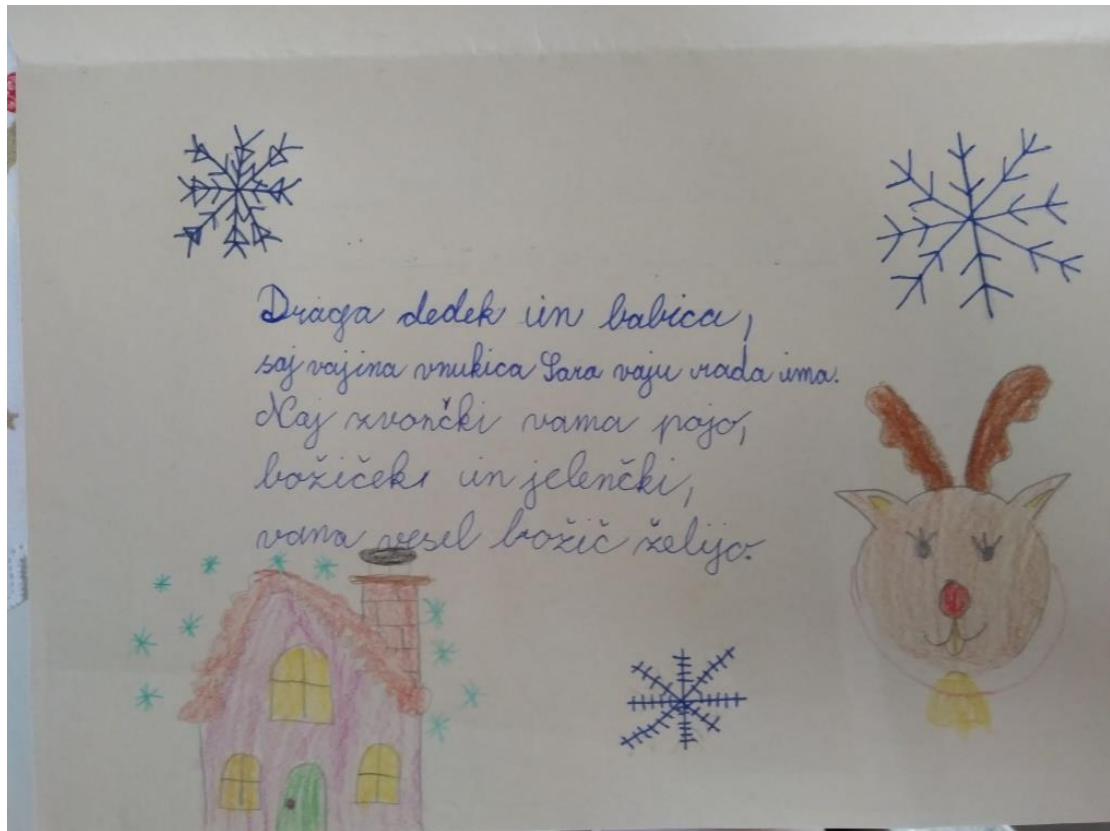 Draga dedek in babica,
saj vajina vnukica Sara vaju rada ima.
Naj zvončki vama pojo,
božiček in jelenčki,
vama vesel božič želijo.